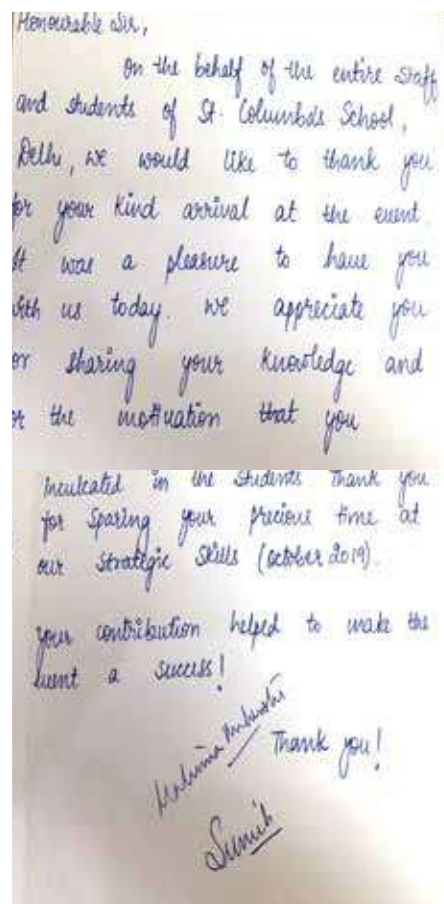 Honourable Sir,
On the behalf of the entire staff
and students of St. Columba's School,
Delhi, we would like to thank you
for your kind arrival at the event.
It was a pleasure to have you
with us today. We appreciate you
for sharing your knowledge and
or the motivation that you
inculcated in the students Thank you
for sparing your precious time at
our Strategic Skills (October 2019).
Your contribution helped to make the
event a success!
Thank you!